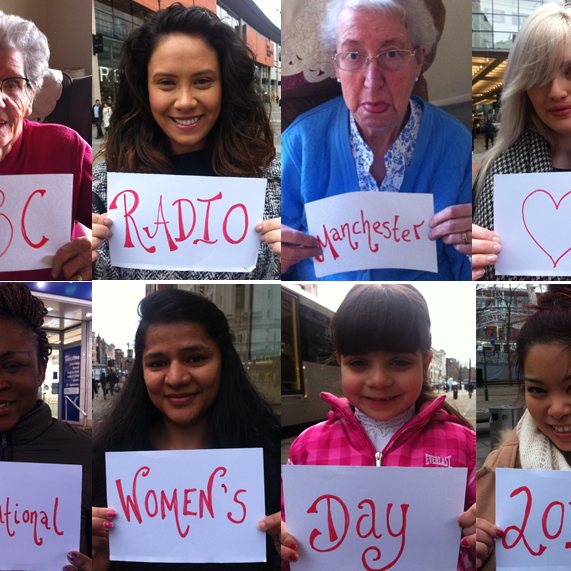 BC RADIO Manchester
ational WOMEN'S DAY 20
EVERLAST